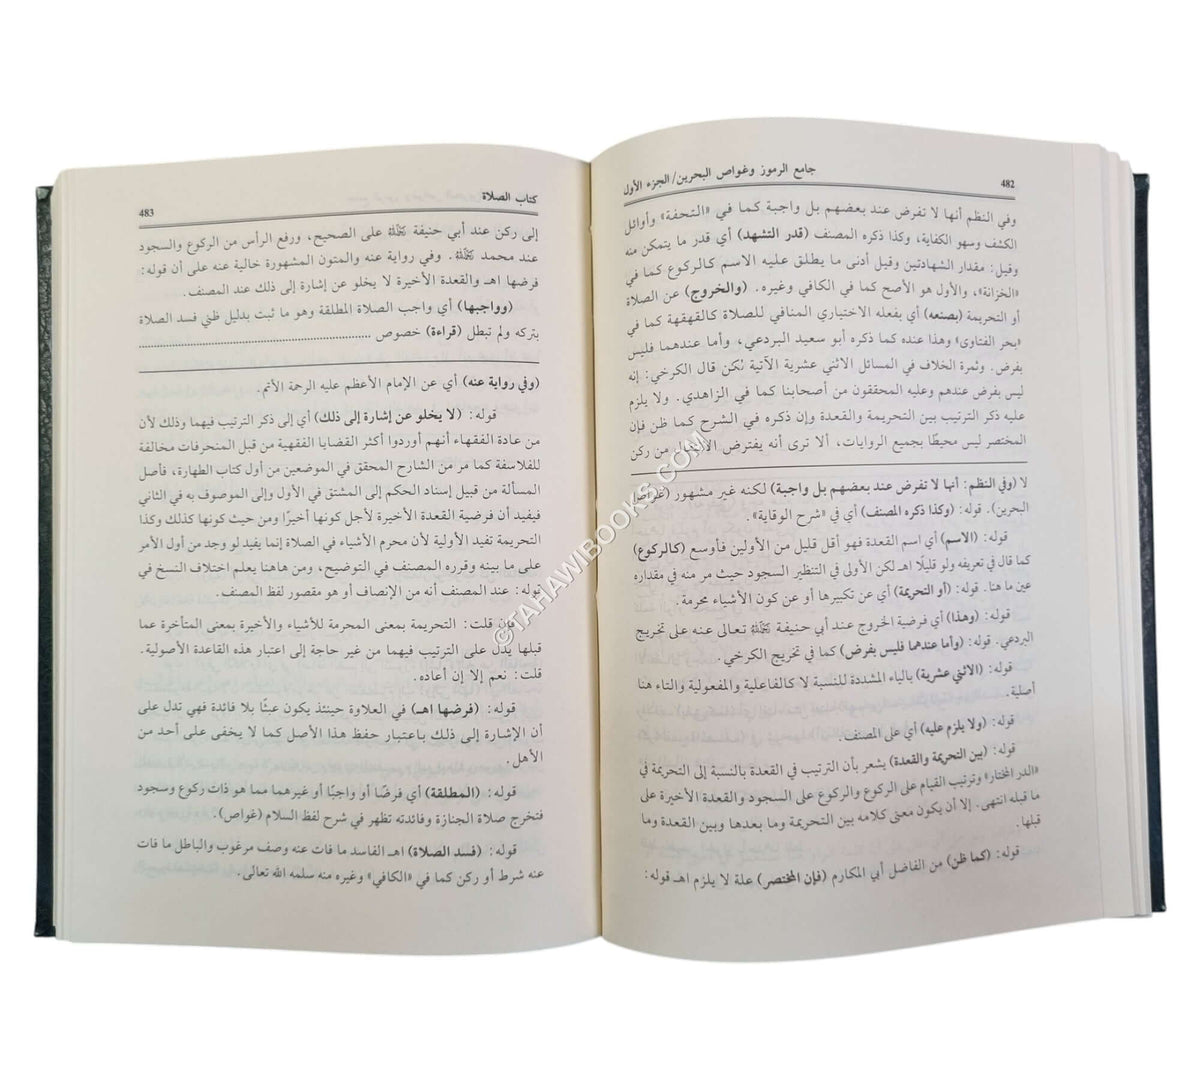 482
جامع الرموز وغواص البحرين/الجزء الأول
وفي النظم أنها لا تفرض عند بعضهم بل واجبة كما في «التحفة» وأوائل
الكشف وسهو الكفاية، وكذا ذكره المصنف (قدر التشهد) أي قدر ما يتمكن منه
وقيل: مقدار الشهادتين وقيل أدنى ما يطلق عليه الاسم كالركوع كما في
«الخزانة»، والأول هو الأصح كما في الكافي وغيره. (والخروج) عن الصلاة
أو التحريمة (بصنعه) أي بفعله الاختياري المنافي للصلاة كالقهقهة كما في
«بحر الفتاوى» وهذا عنده كما ذكره أبو سعيد البردعي، وأما عندهما فليس
بفرض. وثمرة الخلاف في المسائل الاثني عشرية الآتية لكن قال الكرخي: إنه
ليس بفرض عندهم وعليه المحققون من أصحابنا كما في الزاهدي. ولا يلزم
عليه ذكر الترتيب بين التحريمة والقعدة وإن ذكره في الشرح كما ظن فإن
المختصر ليس محيطًا بجميع الروايات، ألا ترى أنه يفترض من ركن
لا (وفي النظم: أنها لا تفرض عند بعضهم بل واجبة) لكنه غير مشهور (غواص
البحرين). قوله: (وكذا ذكره المصنف) أي في «شرح الوقاية».
قوله: (الاسم) أي اسم القعدة فهو أقل قليل من الأولين فأوسع (كالركوع)
كما قال في تعريفه ولو قليلًا اهـ لكن الأولى في التنظير السجود حيث مر منه في مقداره
عين ما هنا. قوله: (أو التحريمة) أي عن تكبيرها أو عن كون الأشياء محرمة.
قوله: (وهذا) أي فرضية الخروج عند أبي حنيفة رحمه الله تعالى عنه على تخريج
البردعي. قوله: (وأما عندهما فليس بفرض) كما في تخريج الكرخي.
قوله: (الاثني عشرية) بالياء المشددة للنسبة لا كالفاعلية والمفعولية والتاء هنا
أصلية.
قوله: (ولا يلزم عليه) أي على المصنف.
قوله: (بين التحريمة والقعدة) يشعر بأن الترتيب في القعدة بالنسبة إلى التحريمة في
«الدر المختار» وترتيب القيام على الركوع والركوع على السجود والقعدة الأخيرة على
ما قبله انتهى. إلا أن يكون معنى كلامه بين التحريمة وما بعدها وبين القعدة وما
قبلها.
قوله: (كما ظن) من الفاضل أبي المكارم (فإن المختصر) علة لا يلزم اهـ قوله:
كتاب الصلاة
483
إلى ركن عند أبي حنيفة رحمه الله على الصحيح، ورفع الرأس من الركوع والسجود
عند محمد رحمه الله. وفي رواية عنه والمتون المشهورة خالية عنه على أن قوله:
فرضها اهـ والقعدة الأخيرة لا يخلو عن إشارة إلى ذلك عند المصنف.
(وواجبها) أي واجب الصلاة المطلقة وهو ما ثبت بدليل ظني فسد الصلاة
بتركه ولم تبطل (قراءة) خصوص ........................................
(وفي رواية عنه) أي عن الإمام الأعظم عليه الرحمة الأتم.
قوله: (لا يخلو عن إشارة إلى ذلك) أي إلى ذكر الترتيب فيهما وذلك لأن
من عادة الفقهاء أنهم أوردوا أكثر القضايا الفقهية من قبل المنحرفات مخالفة
للفلاسفة كما مر من الشارح المحقق في الموضعين من أول كتاب الطهارة، فأصل
المسألة من قبيل إسناد الحكم إلى المشتق في الأول وإلى الموصوف به في الثاني
فيفيد أن فرضية القعدة الأخيرة لأجل كونها أخيرًا ومن حيث كونها كذلك وكذا
التحريمة تفيد الأولية لأن محرم الأشياء في الصلاة إنما يفيد لو وجد من أول الأمر
على ما بينه وقرره المصنف في التوضيح، ومن هاهنا يعلم اختلاف النسخ في
قوله: عند المصنف أنه من الإنصاف أو هو مقصور لفظ المصنف.
فإن قلت: التحريمة بمعنى المحرمة للأشياء والأخيرة بمعنى المتأخرة عما
قبلها يدل على الترتيب فيهما من غير حاجة إلى اعتبار هذه القاعدة الأصولية.
قلت: نعم إلا إن أعاده.
قوله: (فرضها اهـ) في العلاوة حينئذ يكون عبثًا بلا فائدة فهي تدل على
أن الإشارة إلى ذلك باعتبار حفظ هذا الأصل كما لا يخفى على أحد من
الأهل.
قوله: (المطلقة) أي فرضًا أو واجبًا أو غيرهما مما هو ذات ركوع وسجود
فتخرج صلاة الجنازة وفائدته تظهر في شرح لفظ السلام (غواص).
قوله: (فسد الصلاة) اهـ الفاسد ما فات عنه وصف مرغوب والباطل ما فات
عنه شرط أو ركن كما في «الكافي» وغيره منه سلمه الله تعالى.
©TAHAWIBOOKS.COM